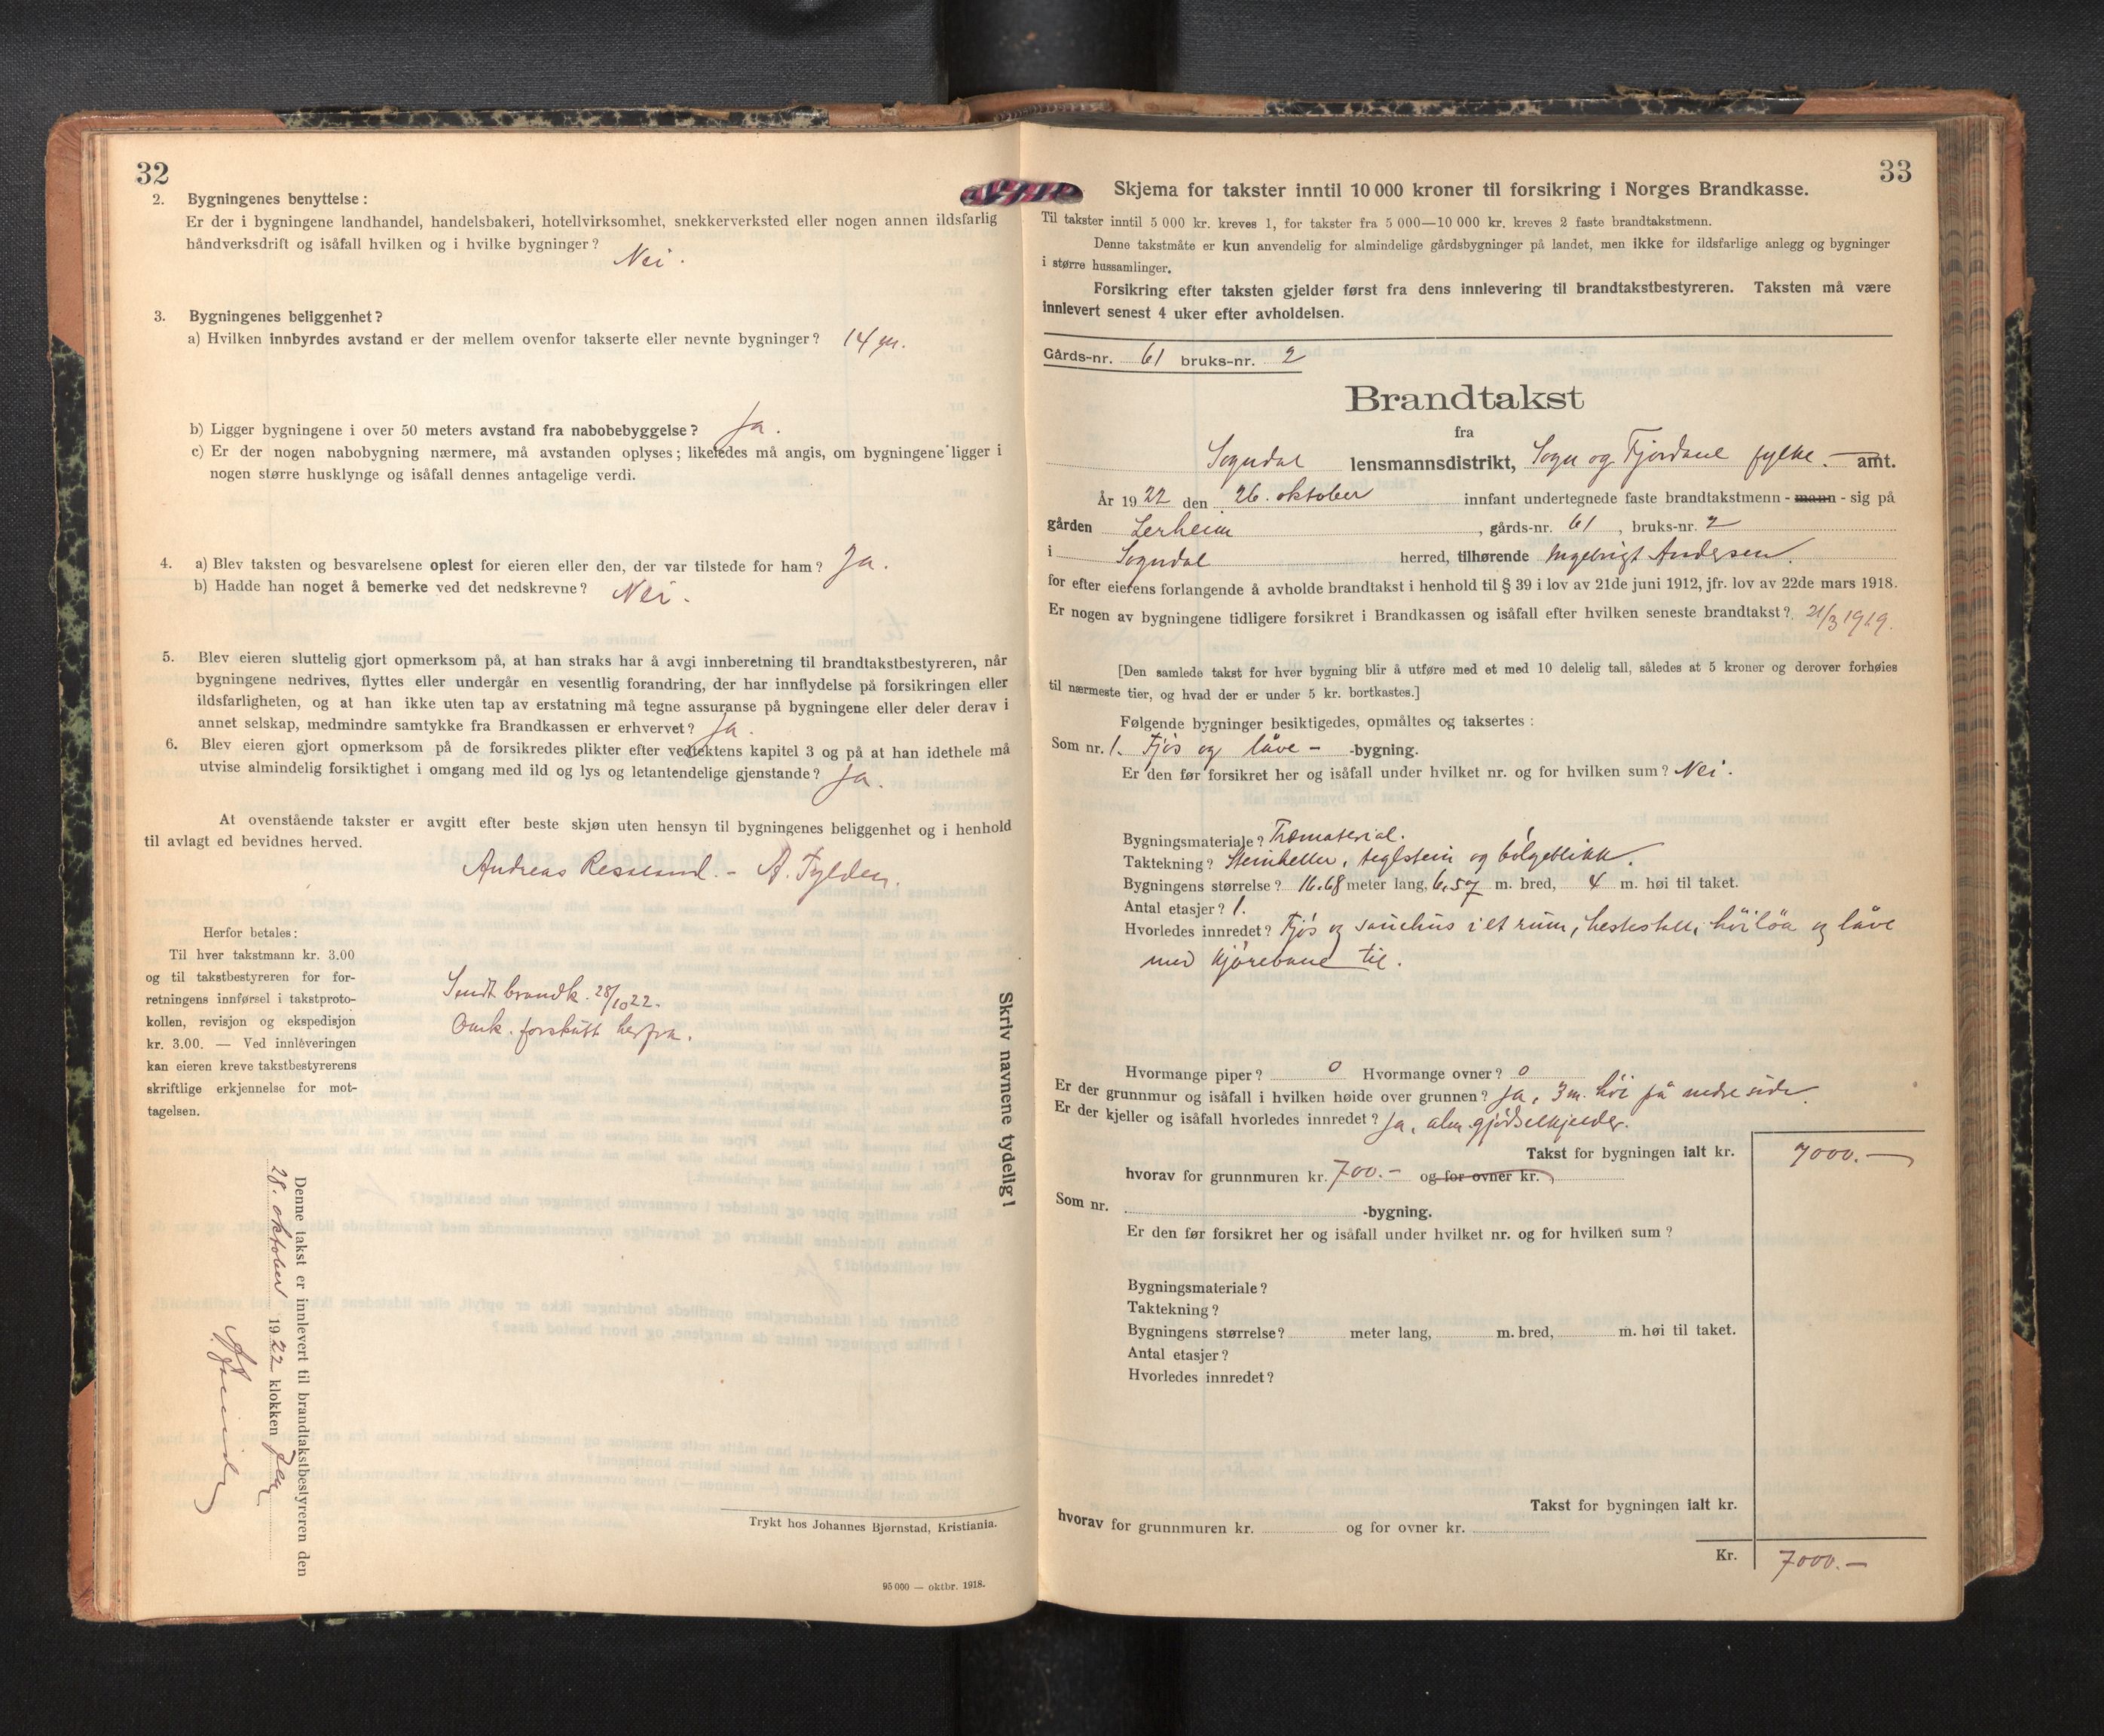 32
2. Bygningenes benyttelse:
Er der i bygningene landhandel, handelsbakeri, hotellvirksomhet, snekkerverksted eller nogen annen ildsfarlig
håndverksdrift og isåfall hvilken og i hvilke bygninger? Nei.
3. Bygningenes beliggenhet?
a) Hvilken innbyrdes avstand er der mellem ovenfor takserte eller nevnte bygninger? 14 m.
b) Ligger bygningene i over 50 meters avstand fra nabobebyggelse? Ja.
c) Er der nogen nabobygning nærmere, må avstanden oplyses; likeledes må angis, om bygningene ligger i
nogen større husklynge og isåfall dennes antagelige verdi.
4. a) Blev taksten og besvarelsene oplest for eieren eller den, der var tilstede for ham? Ja.
b) Hadde han noget å bemerke ved det nedskrevne? Nei.
5. Blev eieren sluttelig gjort opmerksom på, at han straks har å avgi innberetning til brandtakstbestyreren, når
bygningene nedrives, flyttes eller undergår en vesentlig forandring, der har innflydelse på forsikringen eller
ildsfarligheten, og at han ikke uten tap av erstatning må tegne assuranse på bygningene eller deler derav i
annet selskap, medmindre samtykke fra Brandkassen er erhvervet? Ja.
6. Blev eieren gjort opmerksom på de forsikredes plikter efter vedtektens kapitel 3 og på at han idethele må
utvise almindelig forsiktighet i omgang med ild og lys og letantendelige gjenstande? Ja.
At ovenstående takster er avgitt efter beste skjøn uten hensyn til bygningenes beliggenhet og i henhold
til avlagt ed bevidnes herved.
Andreas Reseland. - A. Fylden.
Herfor betales:
Til hver takstmann kr. 3.00
og til takstbestyreren for for-
retningens innførsel i takstproto-
kollen, revisjon og ekspedisjon
kr. 3.00. — Ved innleveringen
kan eieren kreve takstbestyrerens
skriftlige erkjennelse for mot-
tagelsen.
Sendt brandk. 28/10 22.
Omk. forskutt herfra.
Skriv navnene tydelig!
Denne takst er innlevert til brandtakstbestyreren den
28. oktober 1922 klokken
Trykt hos Johannes Bjørnstad, Kristiania.
95 000 — oktbr. 1918.
33
Skjema for takster inntil 10 000 kroner til forsikring i Norges Brandkasse.
Til takster inntil 5 000 kr. kreves 1, for takster fra 5 000—10 000 kr. kreves 2 faste brandtakstmenn.
Denne takstmåte er kun anvendelig for almindelige gårdsbygninger på landet, men ikke for ildsfarlige anlegg og bygninger
i større hussamlinger.
Forsikring efter taksten gjelder først fra dens innlevering til brandtakstbestyreren. Taksten må være
innlevert senest 4 uker efter avholdelsen.
Gårds-nr. 61 bruks-nr. 2
Brandtakst
fra
Sogndal lensmannsdistrikt, Sogn og Fjordane fylke. amt.
År 1922 den 26. oktober innfant undertegnede faste brandtakstmenn - mann - sig på
gården Lerheim, gårds-nr. 61, bruks-nr. 2
i Sogndal herred, tilhørende Ingebrigt Andersen.
for efter eierens forlangende å avholde brandtakst i henhold til § 39 i lov av 21de juni 1912, jfr. lov av 22de mars 1918.
Er nogen av bygningene tidligere forsikret i Brandkassen og isåfall efter hvilken seneste brandtakst? 21/3 1919.
[Den samlede takst for hver bygning blir å utføre med et med 10 delelig tall, således at 5 kroner og derover forhøies
til nærmeste tier, og hvad der er under 5 kr. bortkastes.]
Følgende bygninger besiktigedes, opmåltes og taksertes:
Som nr. 1. Fjös og låve - -bygning.
Er den før forsikret her og isåfall under hvilket nr. og for hvilken sum? Nei.
Bygningsmateriale? Træmaterial.
Taktekning? Steinheller, teglstein og bölgeblikk.
Bygningens størrelse? 16.68 meter lang, 6.57 m. bred, 4 m. høi til taket.
Antal etasjer? 1.
Hvorledes innredet? Fjös og sauehus i et rum, hestestall, höilöa og låve
med kjörebane til.
Hvormange piper? 0 Hvormange ovner? 0
Er der grunnmur og isåfall i hvilken høide over grunnen? Ja, 3 m. höi på nedre side.
Er der kjeller og isåfall hvorledes innredet? Ja, alm. gjödselkjelder.
Takst for bygningen ialt kr. 7000.-
hvorav for grunnmuren kr. 700.- og for ovner kr.
Som nr. -bygning.
Er den før forsikret her og isåfall under hvilket nr. og for hvilken sum?
Bygningsmateriale?
Taktekning?
Bygningens størrelse? meter lang, m. bred, m. høi til taket.
Antal etasjer?
Hvorledes innredet?
Takst for bygningen ialt kr.
hvorav for grunnmuren kr. og for ovner kr.
Kr. 7000.-